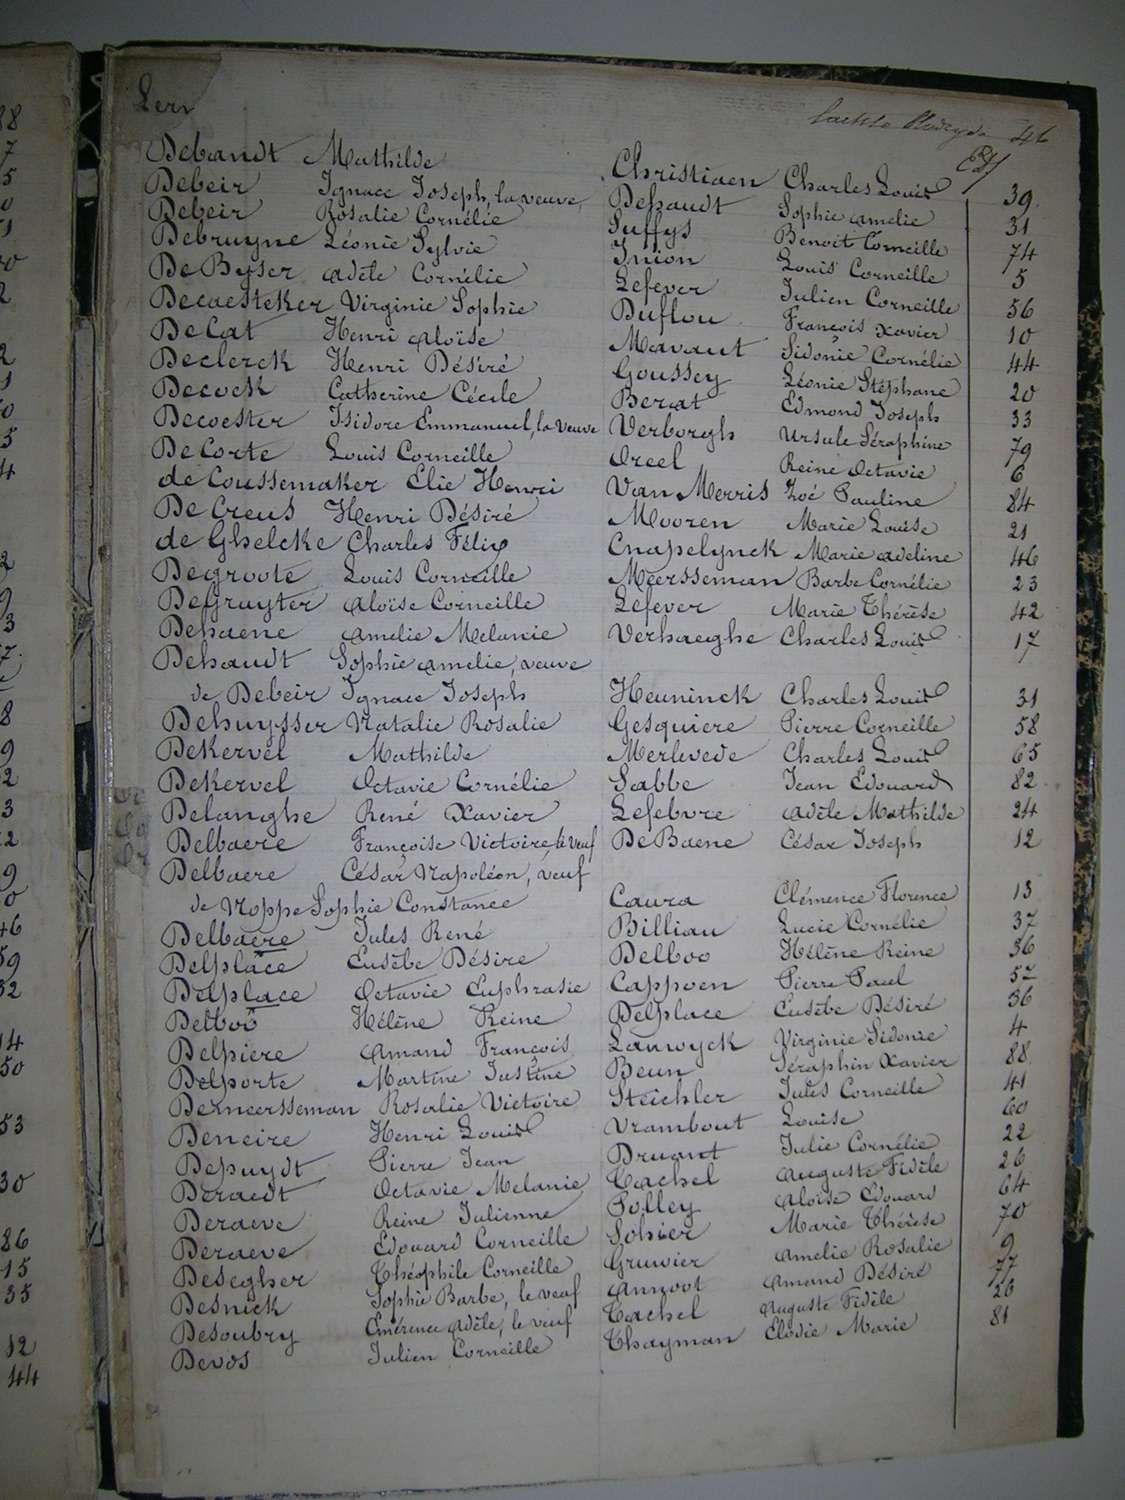 46
Debandt Mathilde Christiaen Charles Louis 39
Debeir Ignace Joseph, la veuve, Dehaudt Sophie Amelie 31
Debeir Rosalie Cornélie Suffys Benoit Corneille 74
Debruyne Léonie Sylvie Inion Louis Corneille 5
DeByser Adèle Cornélie Lefever Julien Corneille 56
Decaesteker Virginie Sophie Duflou François Xavier 10
DeCat Henri Aloïse Mavaut Sidonie Cornélie 44
Declerck Henri Désiré Goussey Léonie Stéphane 20
Decock Catherine Cécile Berat Edmond Joseph 33
Decoester Isidore Emmanuel, la veuve Verborgh Ursule Séraphine 79
DeCorte Louis Corneille Oreel Reine Octavie 6
de Coussemaker Elie Henri Van Merris Zoé Pauline 84
DeCreus Henri Désiré Mooren Marie Louise 21
de Ghelcke Charles Félix Cnapelynck Marie Adeline 46
Degroote Louis Corneille Meersseman Barbe Cornélie 23
DeGruyter Aloïse Corneille Lefever Marie Thérèse 42
Dehaene Amelie Melanie Verhaeghe Charles Louis 17
Dehaudt Sophie Amelie, veuve
de Debeir Ignace Joseph Heuninck Charles Louis 31
Dehuysser Natalie Rosalie Gesquiere Pierre Corneille 58
DeKervel Mathilde Merlevede Charles Louis 65
DeKervel Octavie Cornélie Sabbe Jean Edouard 82
Delanghe René Xavier Lefebvre Adèle Mathilde 24
Delbaere Françoise Victoire, le veuf DeBaene César Joseph 12
Delbaere César Napoléon, veuf
de Noppe Sophie Constance Caura Clémence Florence 13
Delbaere Jules René Billiau Lucie Cornélie 37
Delplace Eusèbe Désire Delboo Hélène Reine 36
Delplace Octavie Euphrasie Cappoen Pierre Paul 57
Delboo Hélène Reine Delplace Eusèbe Désiré 36
Delpiere Amand François Lauwyck Virginie Sidonie 4
Delporte Martine Justine Beun Séraphin Xavier 88
Demeersseman Rosalie Victoire Steichler Jules Corneille 41
Deneire Henri Louis Vrambout Louise 60
Depuydt Pierre Jean Druant Julie Cornélie 22
Deraedt Octavie Melanie Cachel Auguste Fidèle 26
Deraeve Reine Julienne Polley Aloïse Edouard 64
Deraeve Edouard Corneille Sohier Marie Thérèse 70
Desegher Théophile Corneille Gruwier Amelie Rosalie 9
Desnick Sophie Barbe, le veuf Annoot Amand Désiré 77
Desoubry Emérence Adèle, le veuf Cachel Auguste Fidèle 26
Devos Julien Corneille Thayman Elodie Marie 81